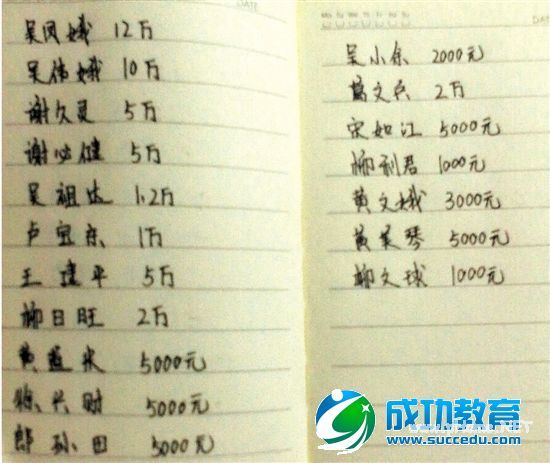 DATE
吴凤娥 12万
吴伟娥 10万
谢久灵 5万
谢必健 5万
吴祖达 1.2万
卢宝东 1万
王建平 5万
柳日旺 2万
黄 5000元
徐兴财 5000元
郎孙田 5000元
DA
吴小东 2000元
葛文兵 2万
宋如江 5000元
柳利君 1000元
黄文娥 3000元
黄美琴 5000元
柳文球 1000元
成功教育
www.succedu.com